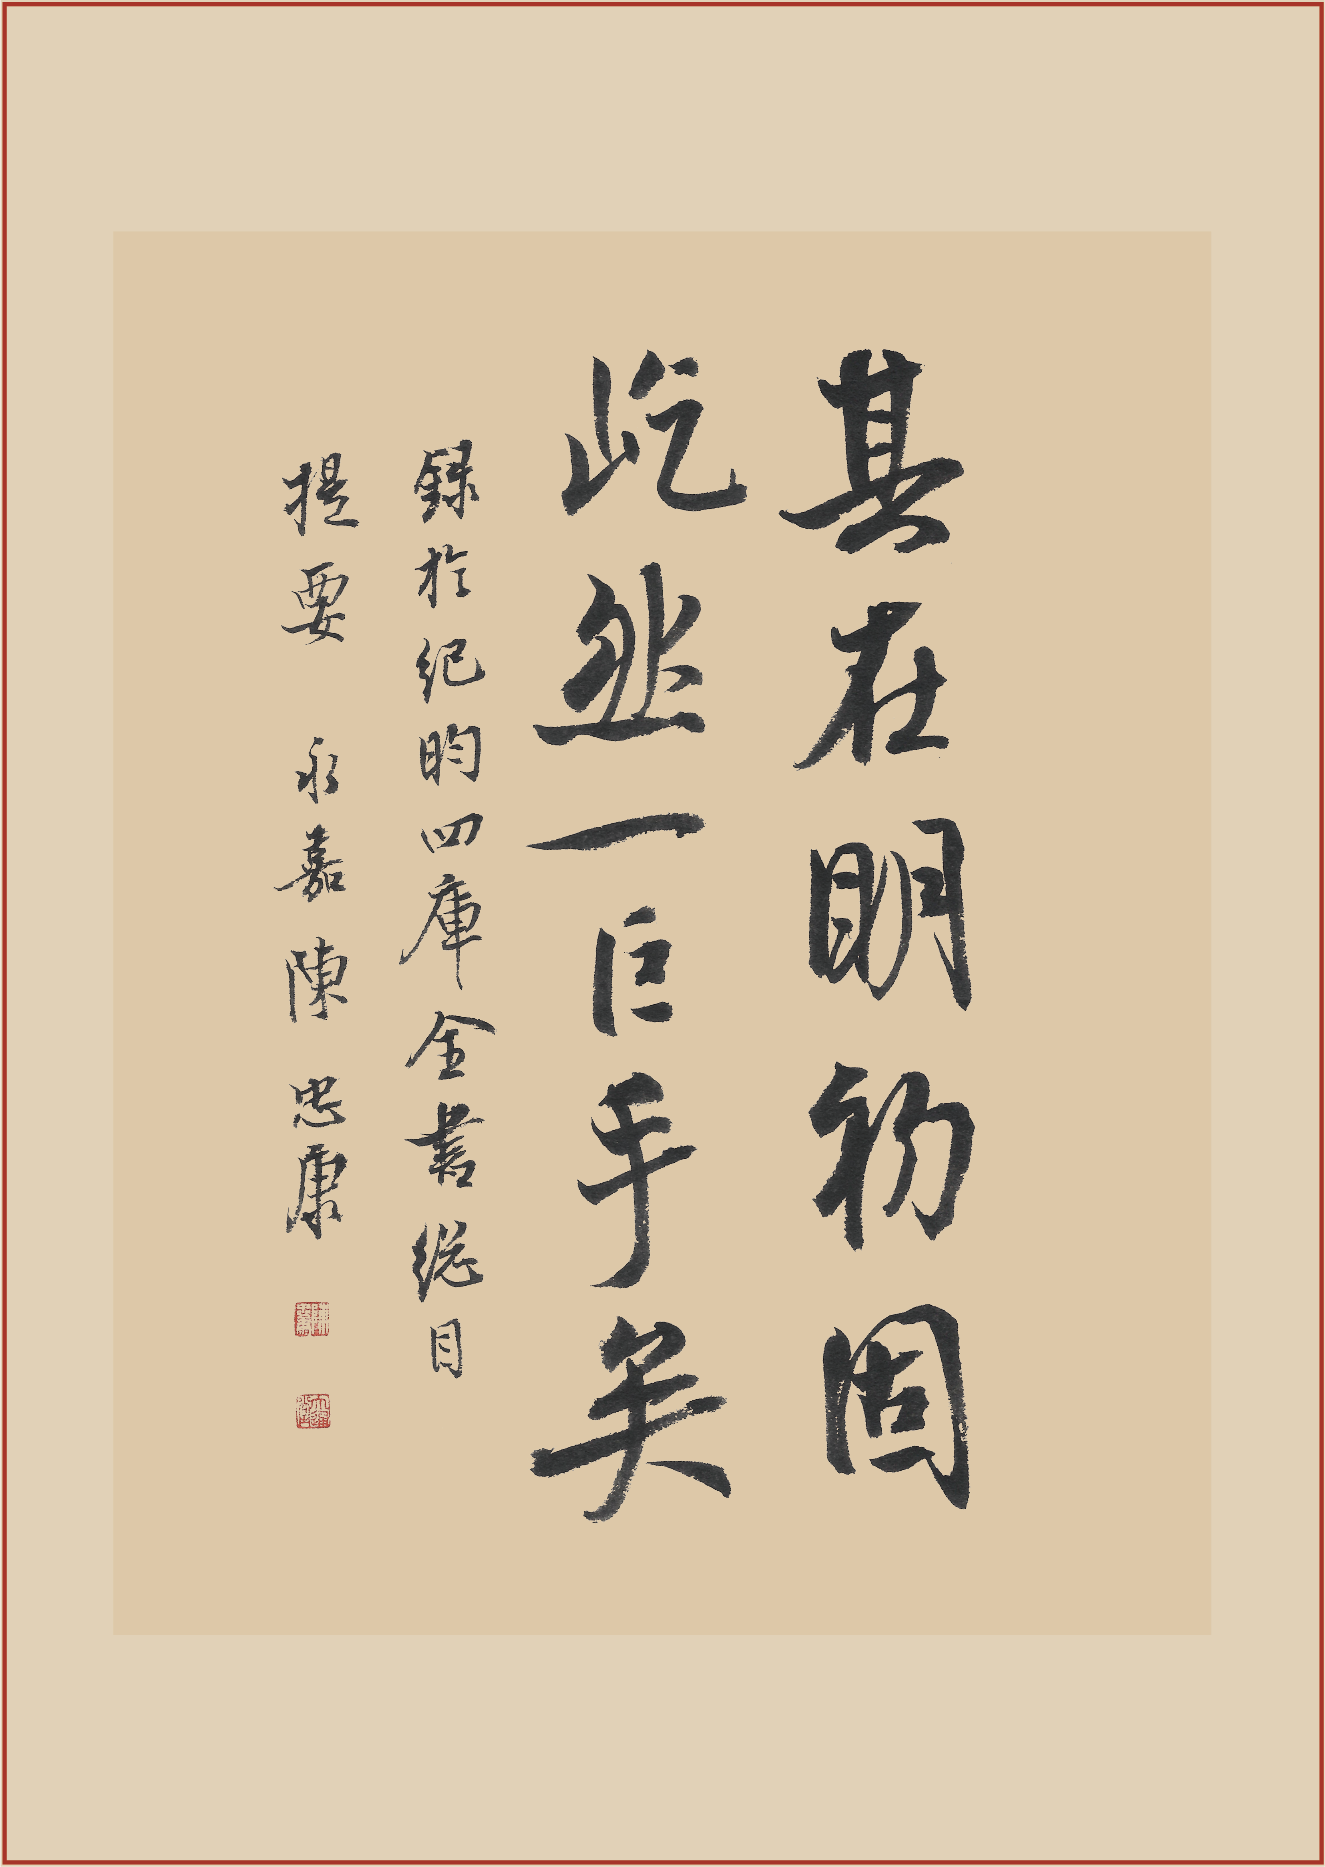 其在明初固
屹然一巨手矣
録於紀昀四庫全書總目
提要 永嘉陳忠康